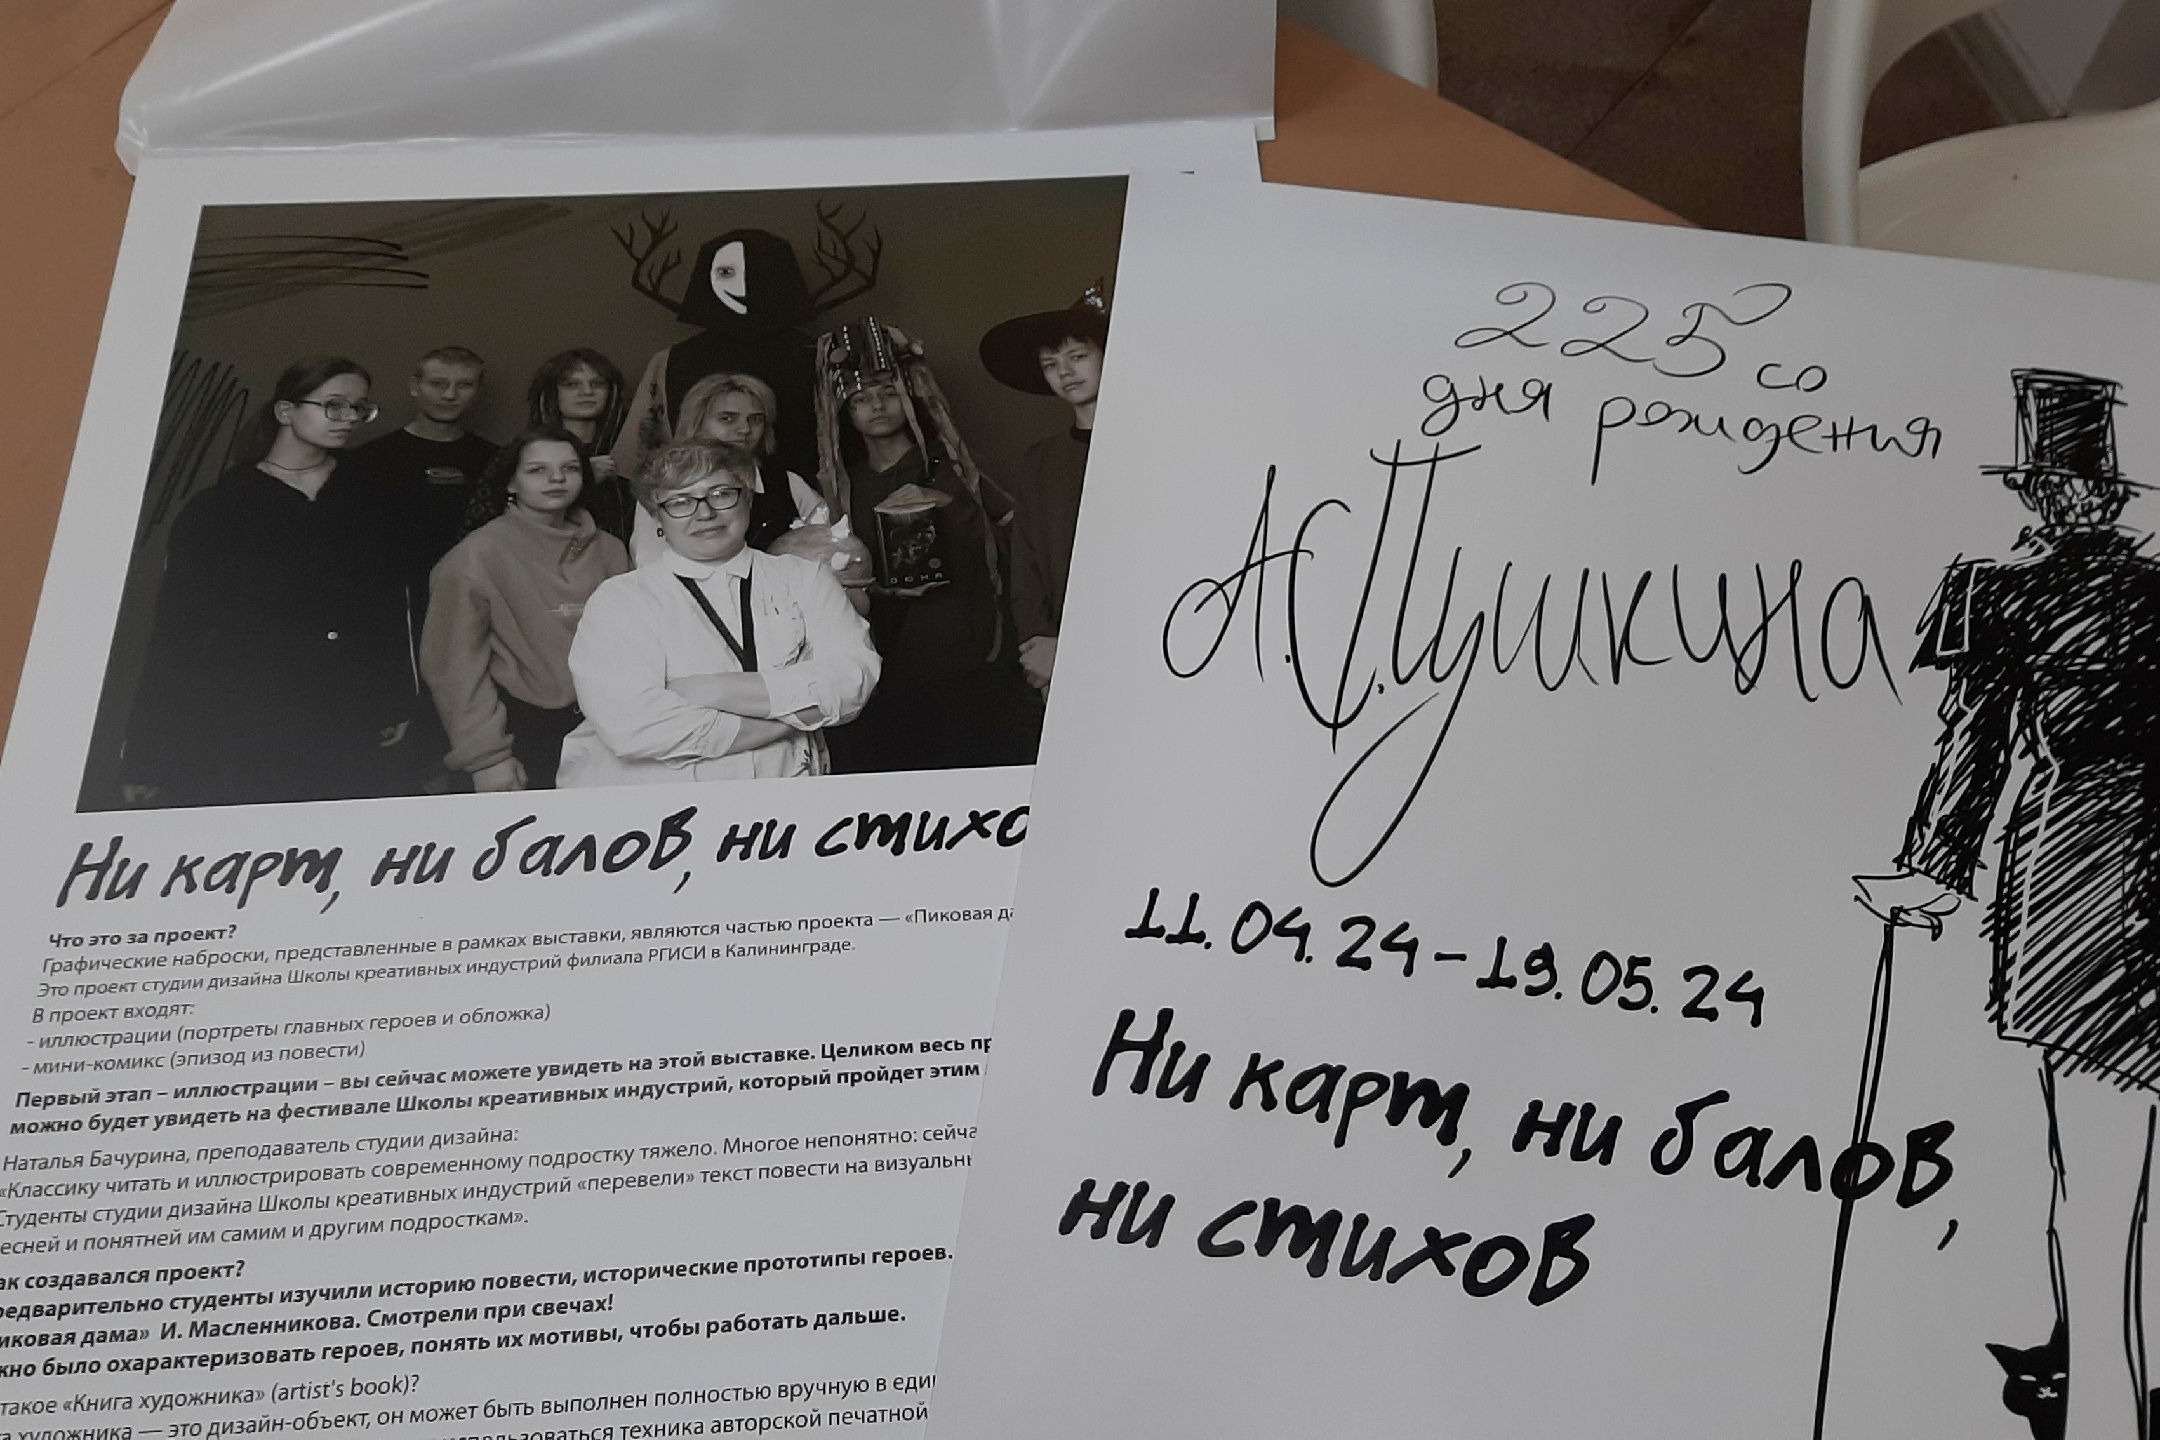 ДЮНА
Ни карт, ни балов, ни стихо
Что это за проект?
Графические наброски, представленные в рамках выставки, являются частью проекта — «Пиковая да
Это проект студии дизайна Школы креативных индустрий филиала РГИСИ в Калининграде.
В проект входят:
- иллюстрации (портреты главных героев и обложка)
- мини-комикс (эпизод из повести)
Первый этап – иллюстрации – вы сейчас можете увидеть на этой выставке. Целиком весь пр
можно будет увидеть на фестивале Школы креативных индустрий, который пройдет этим
Наталья Бачурина, преподаватель студии дизайна:
«Классику читать и иллюстрировать современному подростку тяжело. Многое непонятно: сейча
Студенты студии дизайна Школы креативных индустрий «перевели» текст повести на визуальн
есней и понятней им самим и другим подросткам».
ак создавался проект?
редварительно студенты изучили историю повести, исторические прототипы героев.
иковая дама» И. Масленникова. Смотрели при свечах!
жно было охарактеризовать героев, понять их мотивы, чтобы работать дальше.
такое «Книга художника» (artist's book)?
а художника — это дизайн-объект, он может быть выполнен полностью вручную в еди
использоваться техника авторской печатной
225 со
дня рождения
А.С.Пушкина
11.04.24–19.05.24
Ни карт, ни балов,
ни стихов